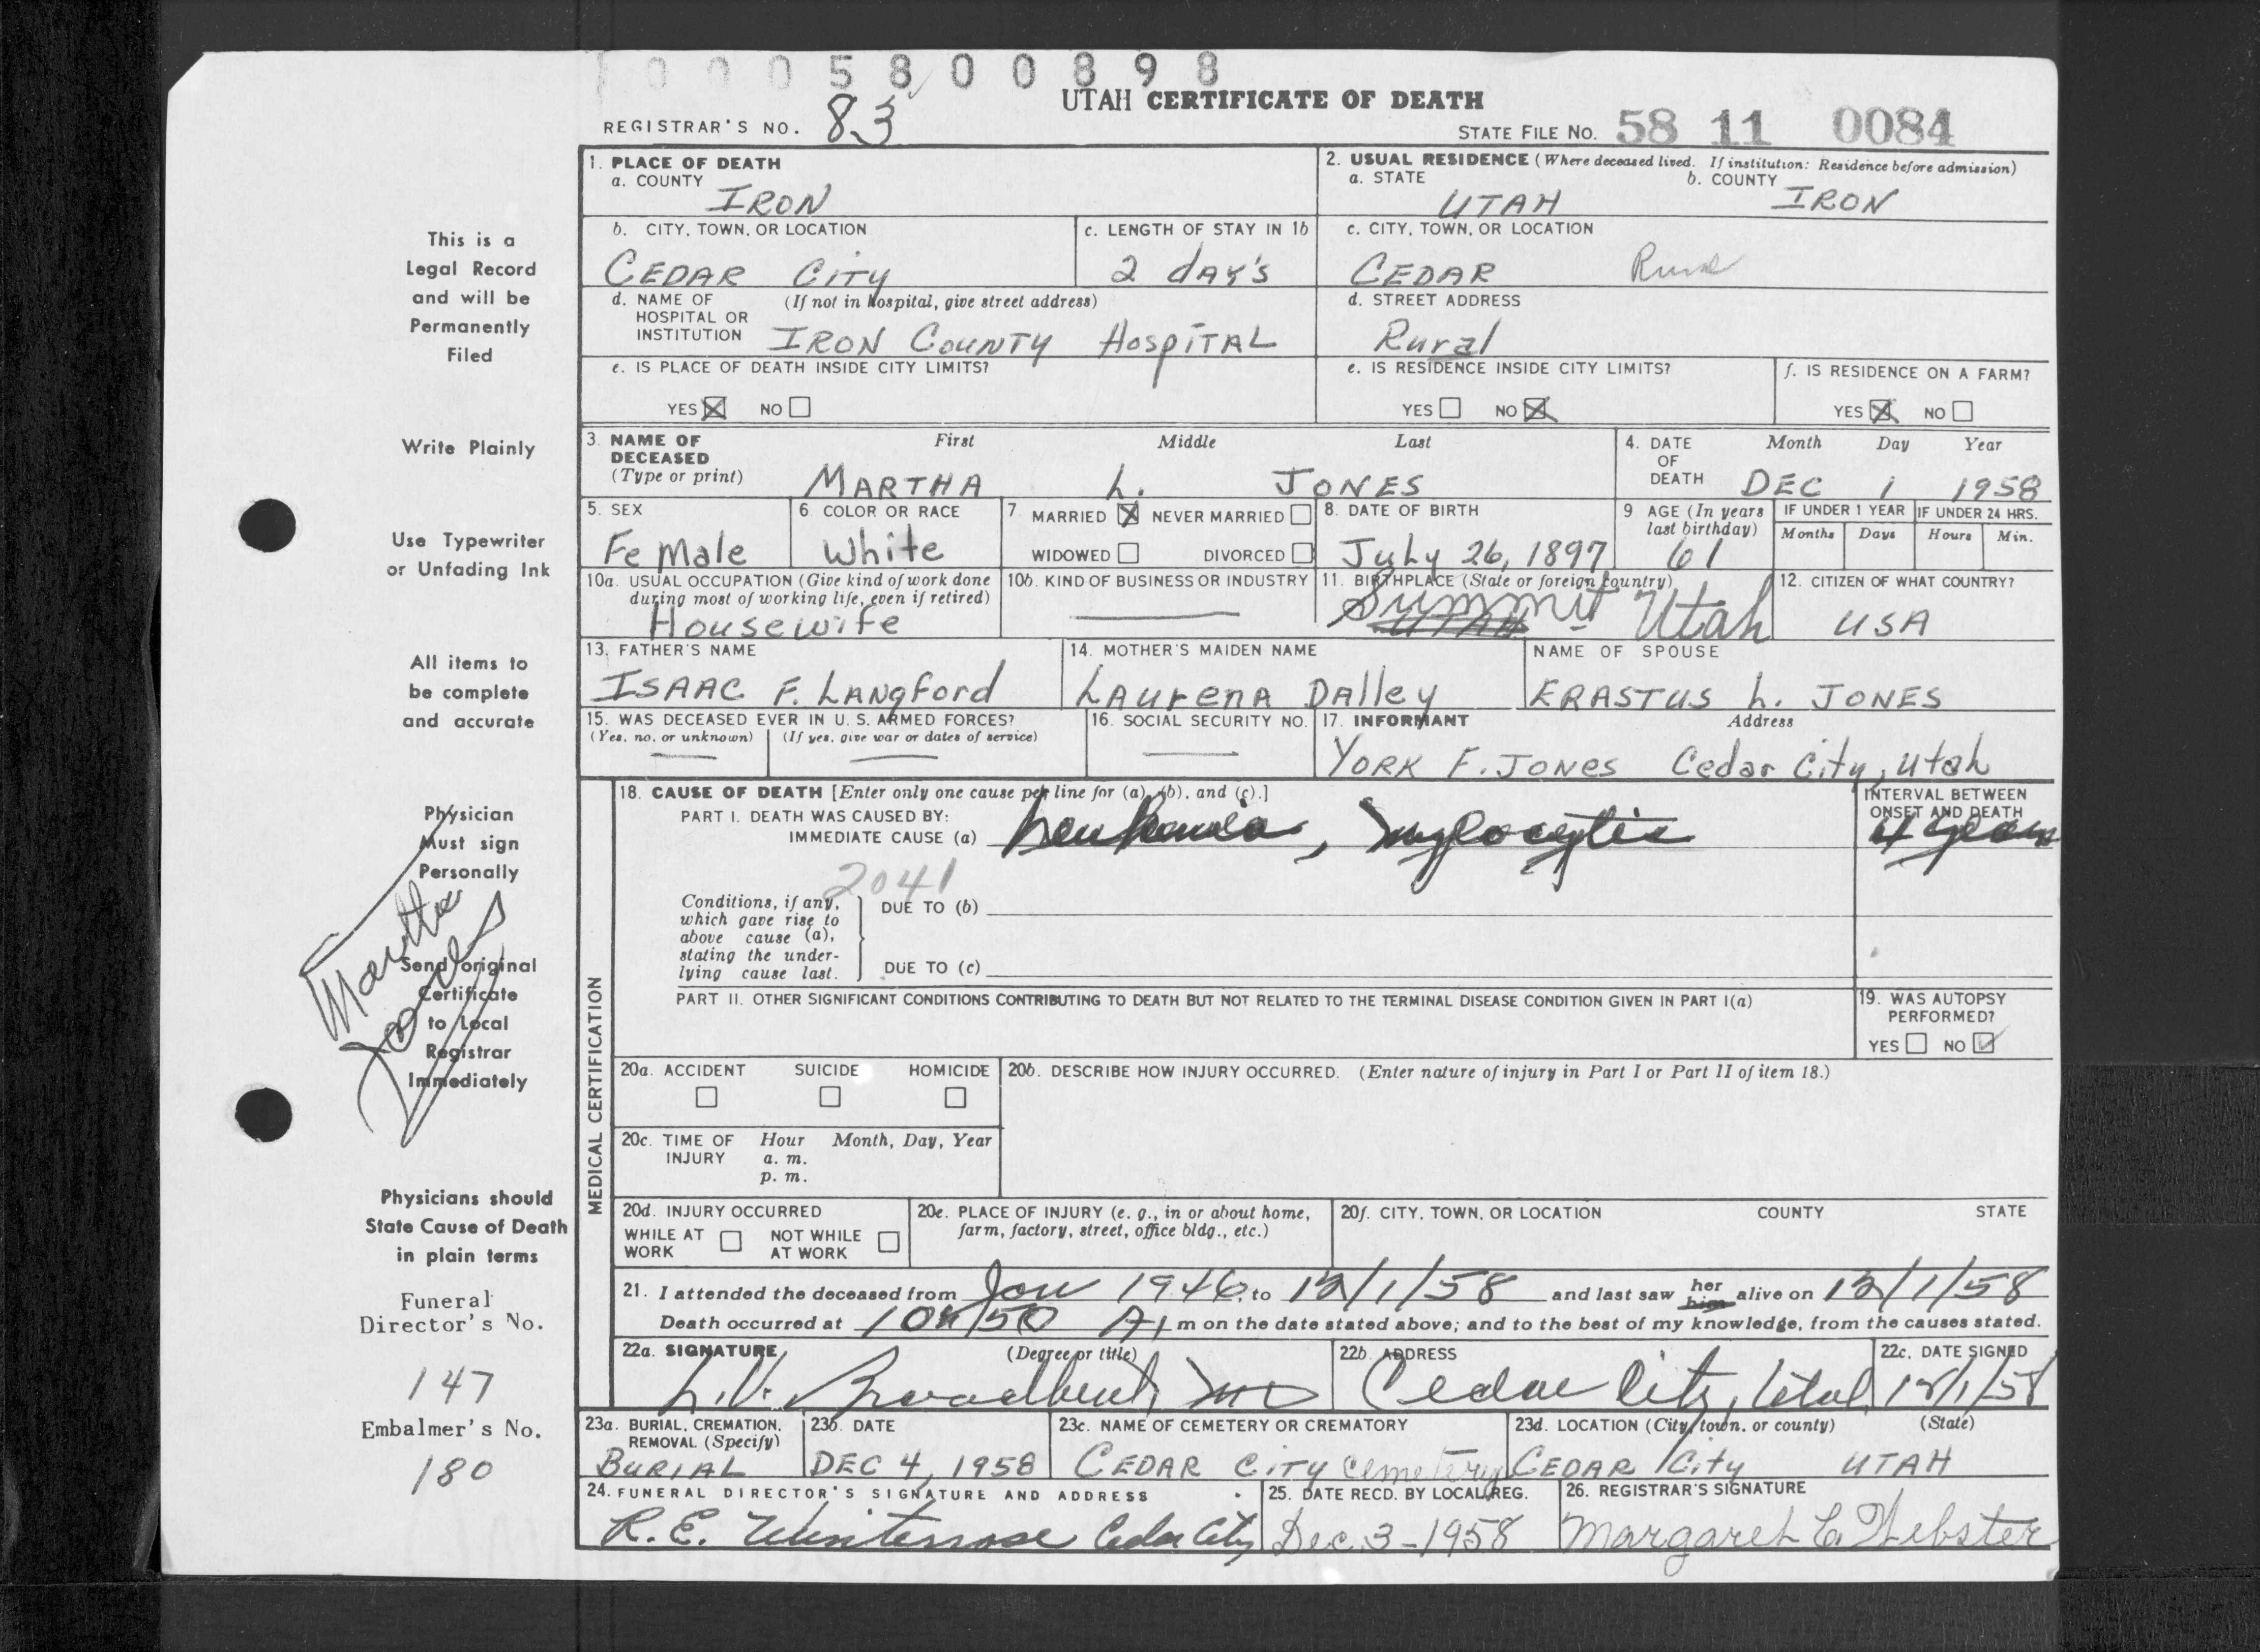 0005800898
UTAH CERTIFICATE OF DEATH
REGISTRAR'S NO. 83
STATE FILE NO. 58 11 0084
1. PLACE OF DEATH
a. COUNTY
IRON
2. USUAL RESIDENCE (Where deceased lived. If institution: Residence before admission)
a. STATE b. COUNTY
UTAH IRON
b. CITY, TOWN, OR LOCATION
CEDAR CITY
c. LENGTH OF STAY IN 1b
2 dAY'S
c. CITY, TOWN, OR LOCATION
CEDAR
d. NAME OF HOSPITAL OR INSTITUTION (If not in hospital, give street address)
IRON COUNTY HospITAL
d. STREET ADDRESS
Rural
e. IS PLACE OF DEATH INSIDE CITY LIMITS?
YES NO
e. IS RESIDENCE INSIDE CITY LIMITS?
YES NO
f. IS RESIDENCE ON A FARM?
YES NO
3. NAME OF DECEASED (Type or print)
First Middle Last
MARTHA L. JONES
4. DATE OF DEATH Month Day Year
DEC 1 1958
5. SEX
FeMale
6. COLOR OR RACE
White
7. MARRIED NEVER MARRIED
WIDOWED DIVORCED
8. DATE OF BIRTH
July 26, 1897
9 AGE (In years last birthday)
61
IF UNDER 1 YEAR
Months Days
IF UNDER 24 HRS.
Hours Min.
10a. USUAL OCCUPATION (Give kind of work done during most of working life, even if retired)
Housewife
10b. KIND OF BUSINESS OR INDUSTRY
11. BIRTHPLACE (State or foreign country)
Summit Utah
12. CITIZEN OF WHAT COUNTRY?
USA
13. FATHER'S NAME
ISAAC F. LANgford
14. MOTHER'S MAIDEN NAME
LAurenA DAlley
NAME OF SPOUSE
ERASTUS L. JONES
15. WAS DECEASED EVER IN U. S. ARMED FORCES?
(Yes, no, or unknown) (If yes, give war or dates of service)
16. SOCIAL SECURITY NO.
17. INFORMANT Address
YORK F. JONES Cedar City, Utah
MEDICAL CERTIFICATION
18. CAUSE OF DEATH [Enter only one cause per line for (a), (b), and (c).]
PART I. DEATH WAS CAUSED BY:
IMMEDIATE CAUSE (a) Leukemia, Myelocytic
INTERVAL BETWEEN ONSET AND DEATH
4 years
2041
Conditions, if any, which gave rise to above cause (a), stating the underlying cause last.
DUE TO (b)
DUE TO (c)
PART II. OTHER SIGNIFICANT CONDITIONS CONTRIBUTING TO DEATH BUT NOT RELATED TO THE TERMINAL DISEASE CONDITION GIVEN IN PART I(a)
19. WAS AUTOPSY PERFORMED?
YES NO
20a. ACCIDENT SUICIDE HOMICIDE
20b. DESCRIBE HOW INJURY OCCURRED. (Enter nature of injury in Part I or Part II of item 18.)
20c. TIME OF INJURY Hour Month, Day, Year
a. m.
p. m.
20d. INJURY OCCURRED
WHILE AT WORK NOT WHILE AT WORK
20e. PLACE OF INJURY (e. g., in or about home, farm, factory, street, office bldg., etc.)
20f. CITY, TOWN, OR LOCATION COUNTY STATE
21. I attended the deceased from Jan 1946, to 12/1/58 and last saw her him alive on 12/1/58
Death occurred at 10:50 A.m on the date stated above; and to the best of my knowledge, from the causes stated.
22a. SIGNATURE (Degree or title)
L.V. Broadbent, MD
22b. ADDRESS
Cedar City, Utah
22c. DATE SIGNED
12/1/58
23a. BURIAL, CREMATION, REMOVAL (Specify)
BURIAL
23b. DATE
DEC 4, 1958
23c. NAME OF CEMETERY OR CREMATORY
CEDAR CITY Cemetery
23d. LOCATION (City, town, or county) (State)
CEDAR City UTAH
24. FUNERAL DIRECTOR'S SIGNATURE AND ADDRESS
R.E. Winterrose Cedar City
25. DATE RECD. BY LOCAL REG.
Dec. 3-1958
26. REGISTRAR'S SIGNATURE
Margaret C. Webster
This is a
Legal Record
and will be
Permanently
Filed
Write Plainly
Use Typewriter
or Unfading Ink
All items to
be complete
and accurate
Physician
Must sign
Personally
Martha
Jones
Send original
Certificate
to Local
Registrar
Immediately
Physicians should
State Cause of Death
in plain terms
Funeral
Director's No.
147
Embalmer's No.
180